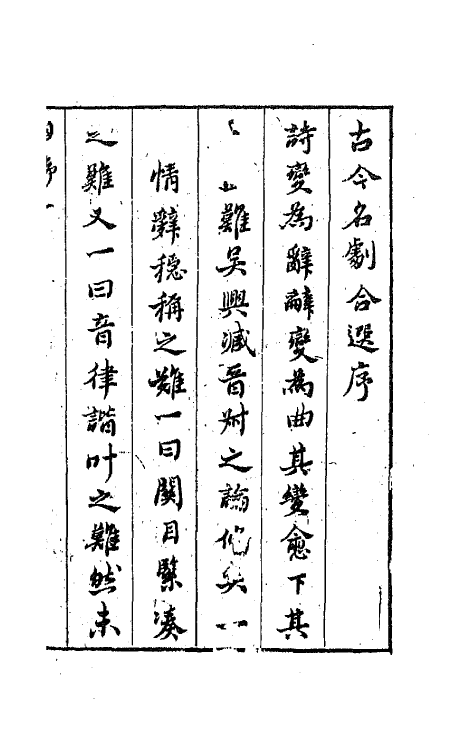 古今名劇合選序
詩變為辭辭變為曲其變愈下其
難吳興臧晉叔之論備矣一
情辭穩稱之難一曰關目緊湊
之難又一曰音律諧叶之難然未